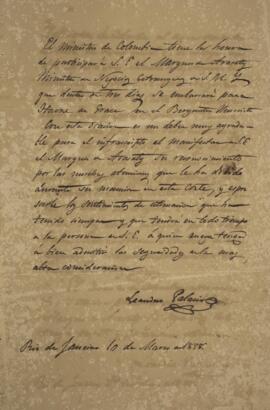 El Ministro de Colombia tiene la honra
de participar à S. E. el Marques de Aracaty
Ministro de Negocios Estrangeros de S. M. I.
que dentro de tres dias se embarcará para
Havre de Grace en el Bergantin
Con este motivo es un deber muy agrada-
ble para el infrascripto el manifestar a S. E.
el Marques de Aracaty su reconocimiento
por las muchas atenciones que le ha debido
durante su mansion en esta Corte, y espre-
sarle los sentimientos de estimacion que ha
tenido siempre y que tendra en todo tiempo
a la persona de S. E. á quien ruega tenga
a bien admitir las seguridades de la mas
alta consideracion
Leandro Palacios
Rio de Janeiro 10 de Marzo de